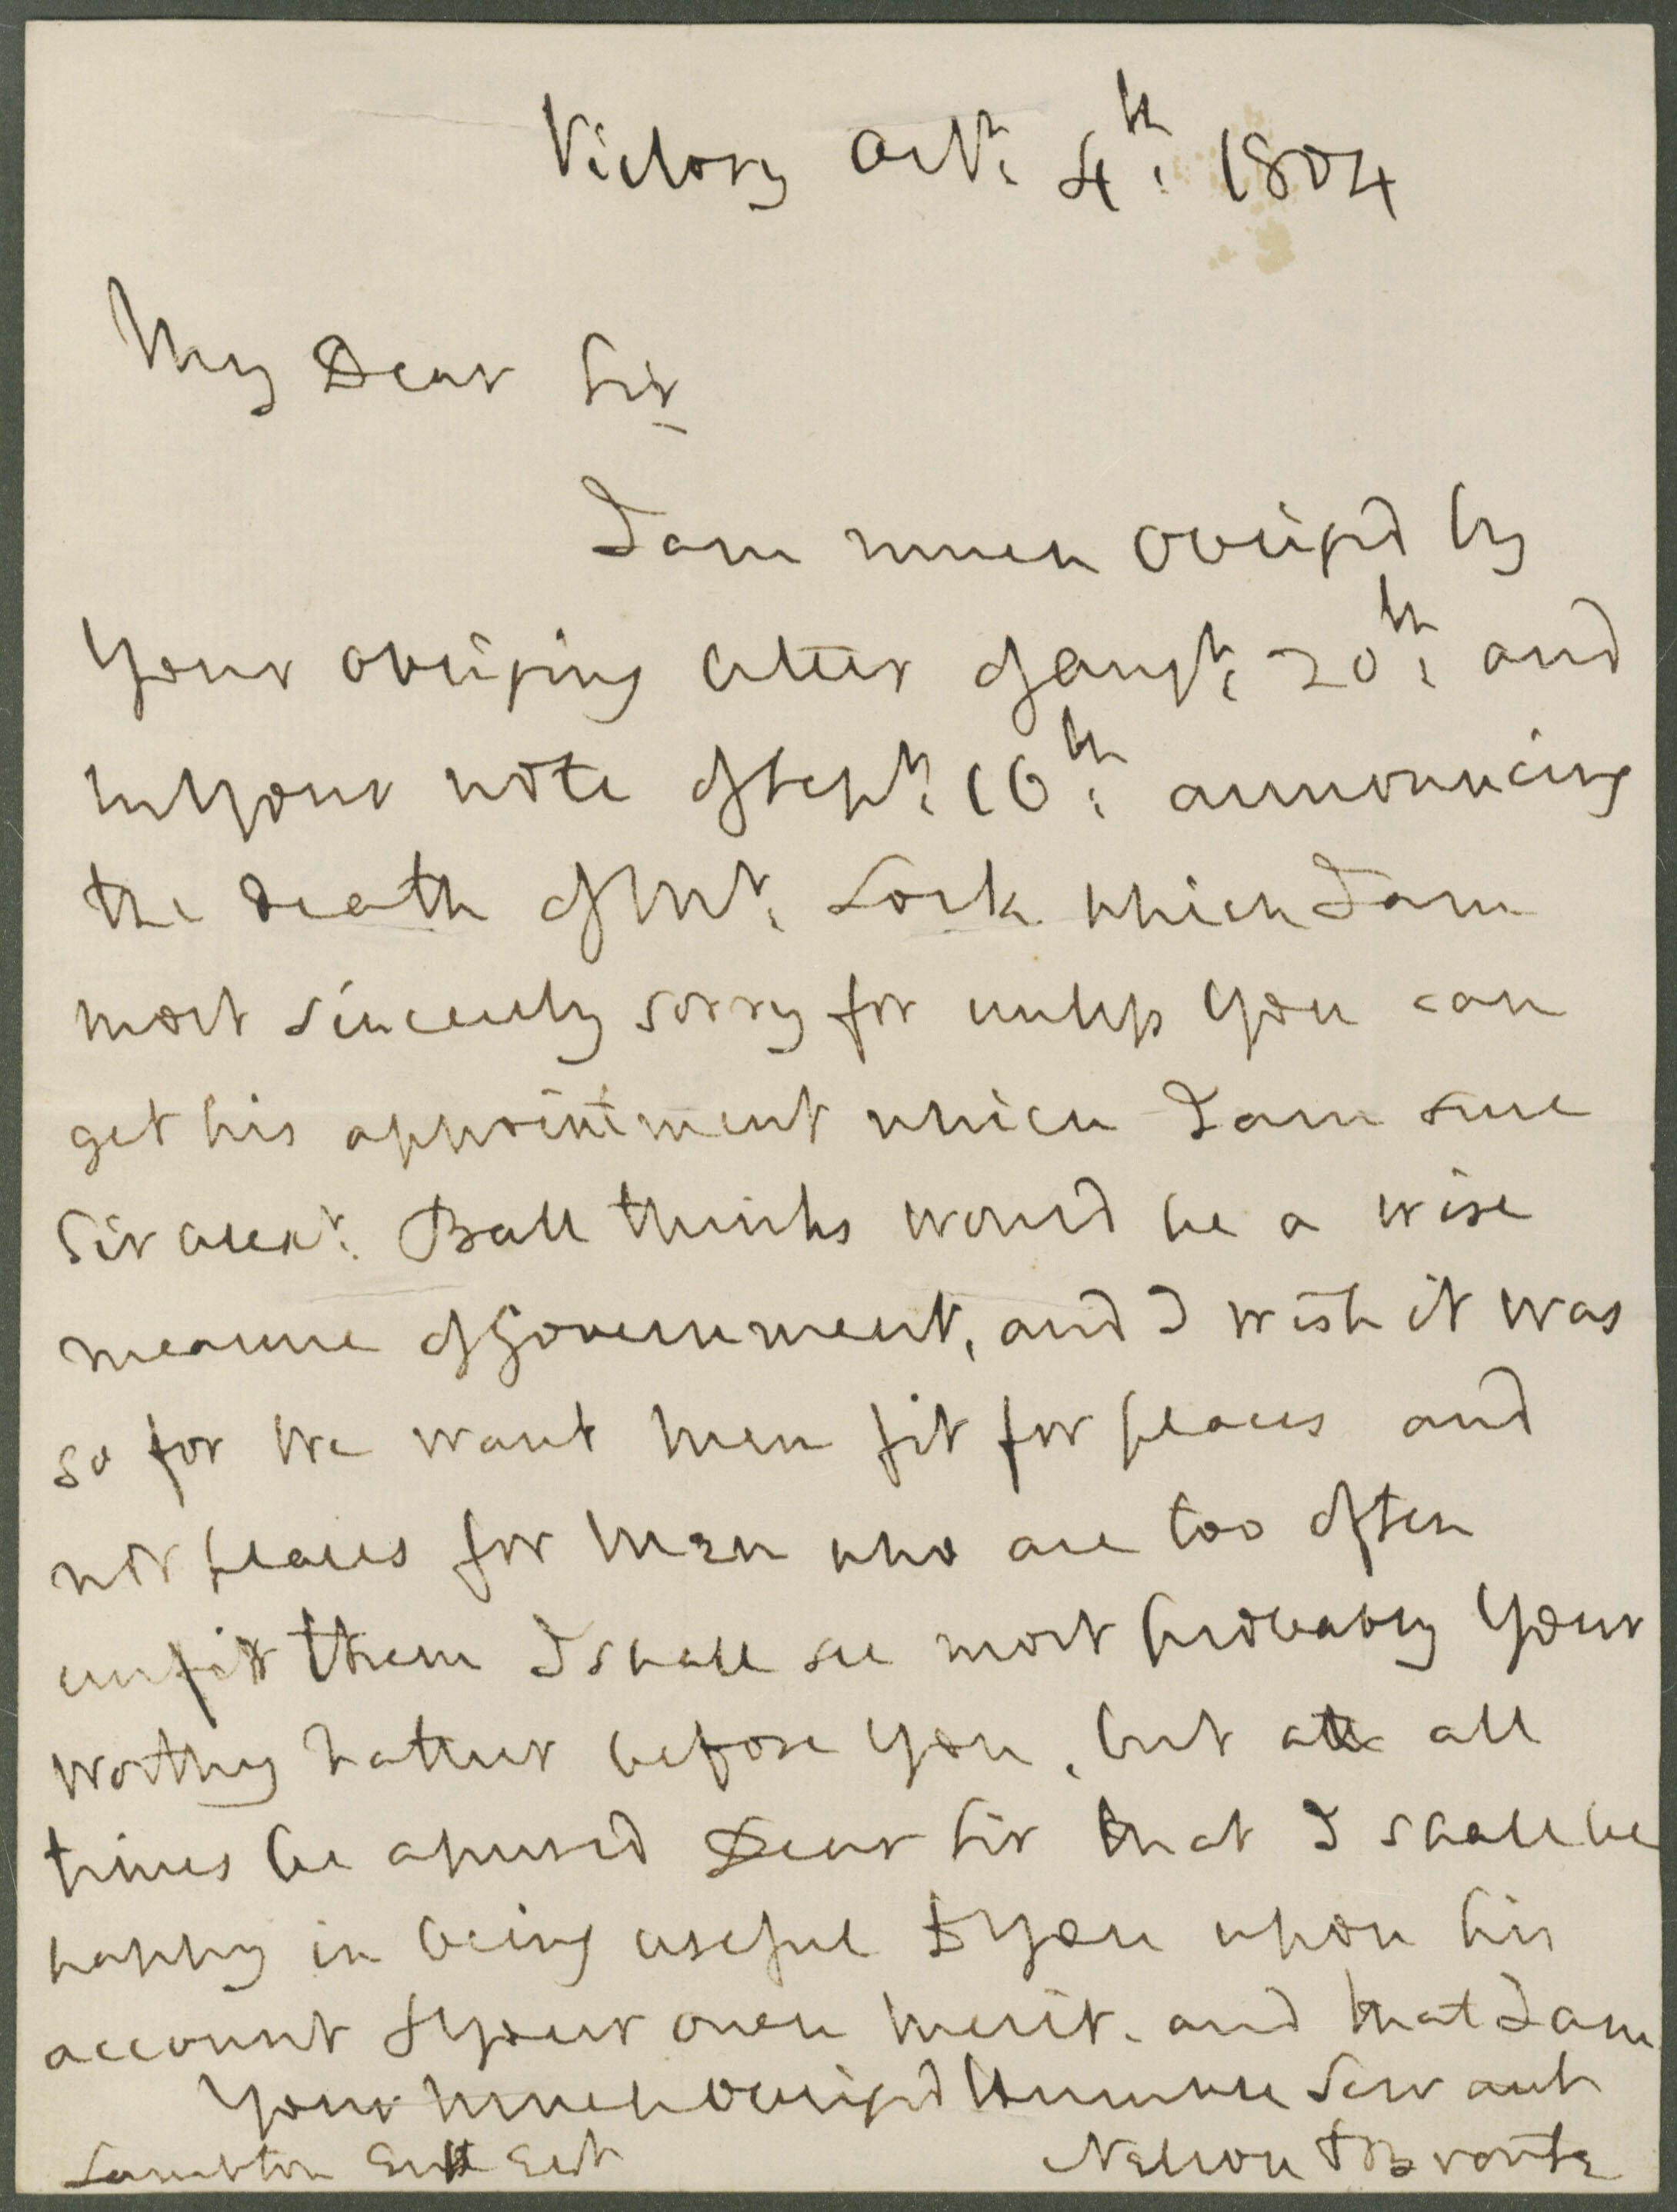 Victory Octr: 4th: 1804
My Dear Sir
I am much obliged by
Your obliging letter of Augt: 20th: and
in Your note of Sept: 16th: announcing
the death of Mr: Lock which I am
most sincerely sorry for unless You can
get his appointment which I am sure
Sir Alexr: Ball thinks would be a wise
measure of Government, and I wish it was
so for We want Men fit for places and
not places for Men who are too often
unfit them I shall see most probably Your
Worthy Father before You, but at all
times be assured Dear Sir that I shall be
happy in being useful to You upon his
account & Your own Merit. and that I am
Your Much obliged Humble Servant
Lambton Esqr Nelson & Bronte